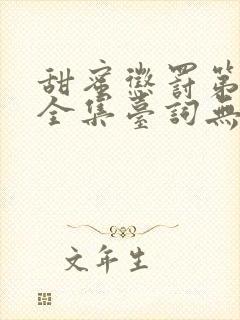 甜蜜懲罰第
全集臺詞無
文年生